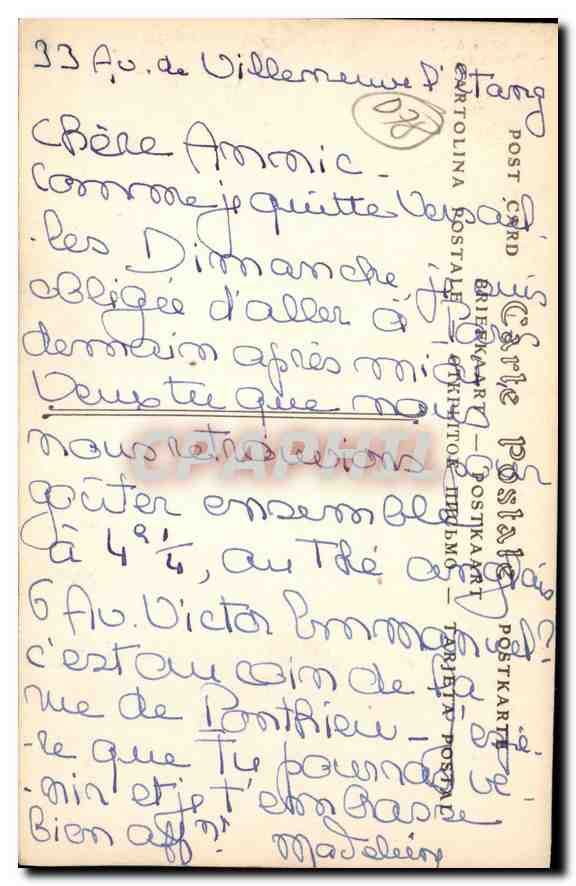 33 Av. de Villeneuve l'Etang
078
Chère Annnic -
Comme je quitte Versail
-les Dimanche, je suis
obligée d'aller à Paris
demain après midi
Veux tu que nous
nous retrouvions
goûter ensemble
à 4h 1/4, au Thé anglais
6 Av. Victor Emmanuel?
c'est au coin de la
rue de Ponthieu - j'espè
-re que tu pourras ve
-nir et je t'embrasse
bien affnt
Madeleine
Carte Postale
POST CARD
POSTKARTE
BRIEFKAART — POSTKAART
CARTOLINA POSTALE — ОТКРЫТОЕ ПИСЬМО — TARJETA POSTAL
CPAPHIL